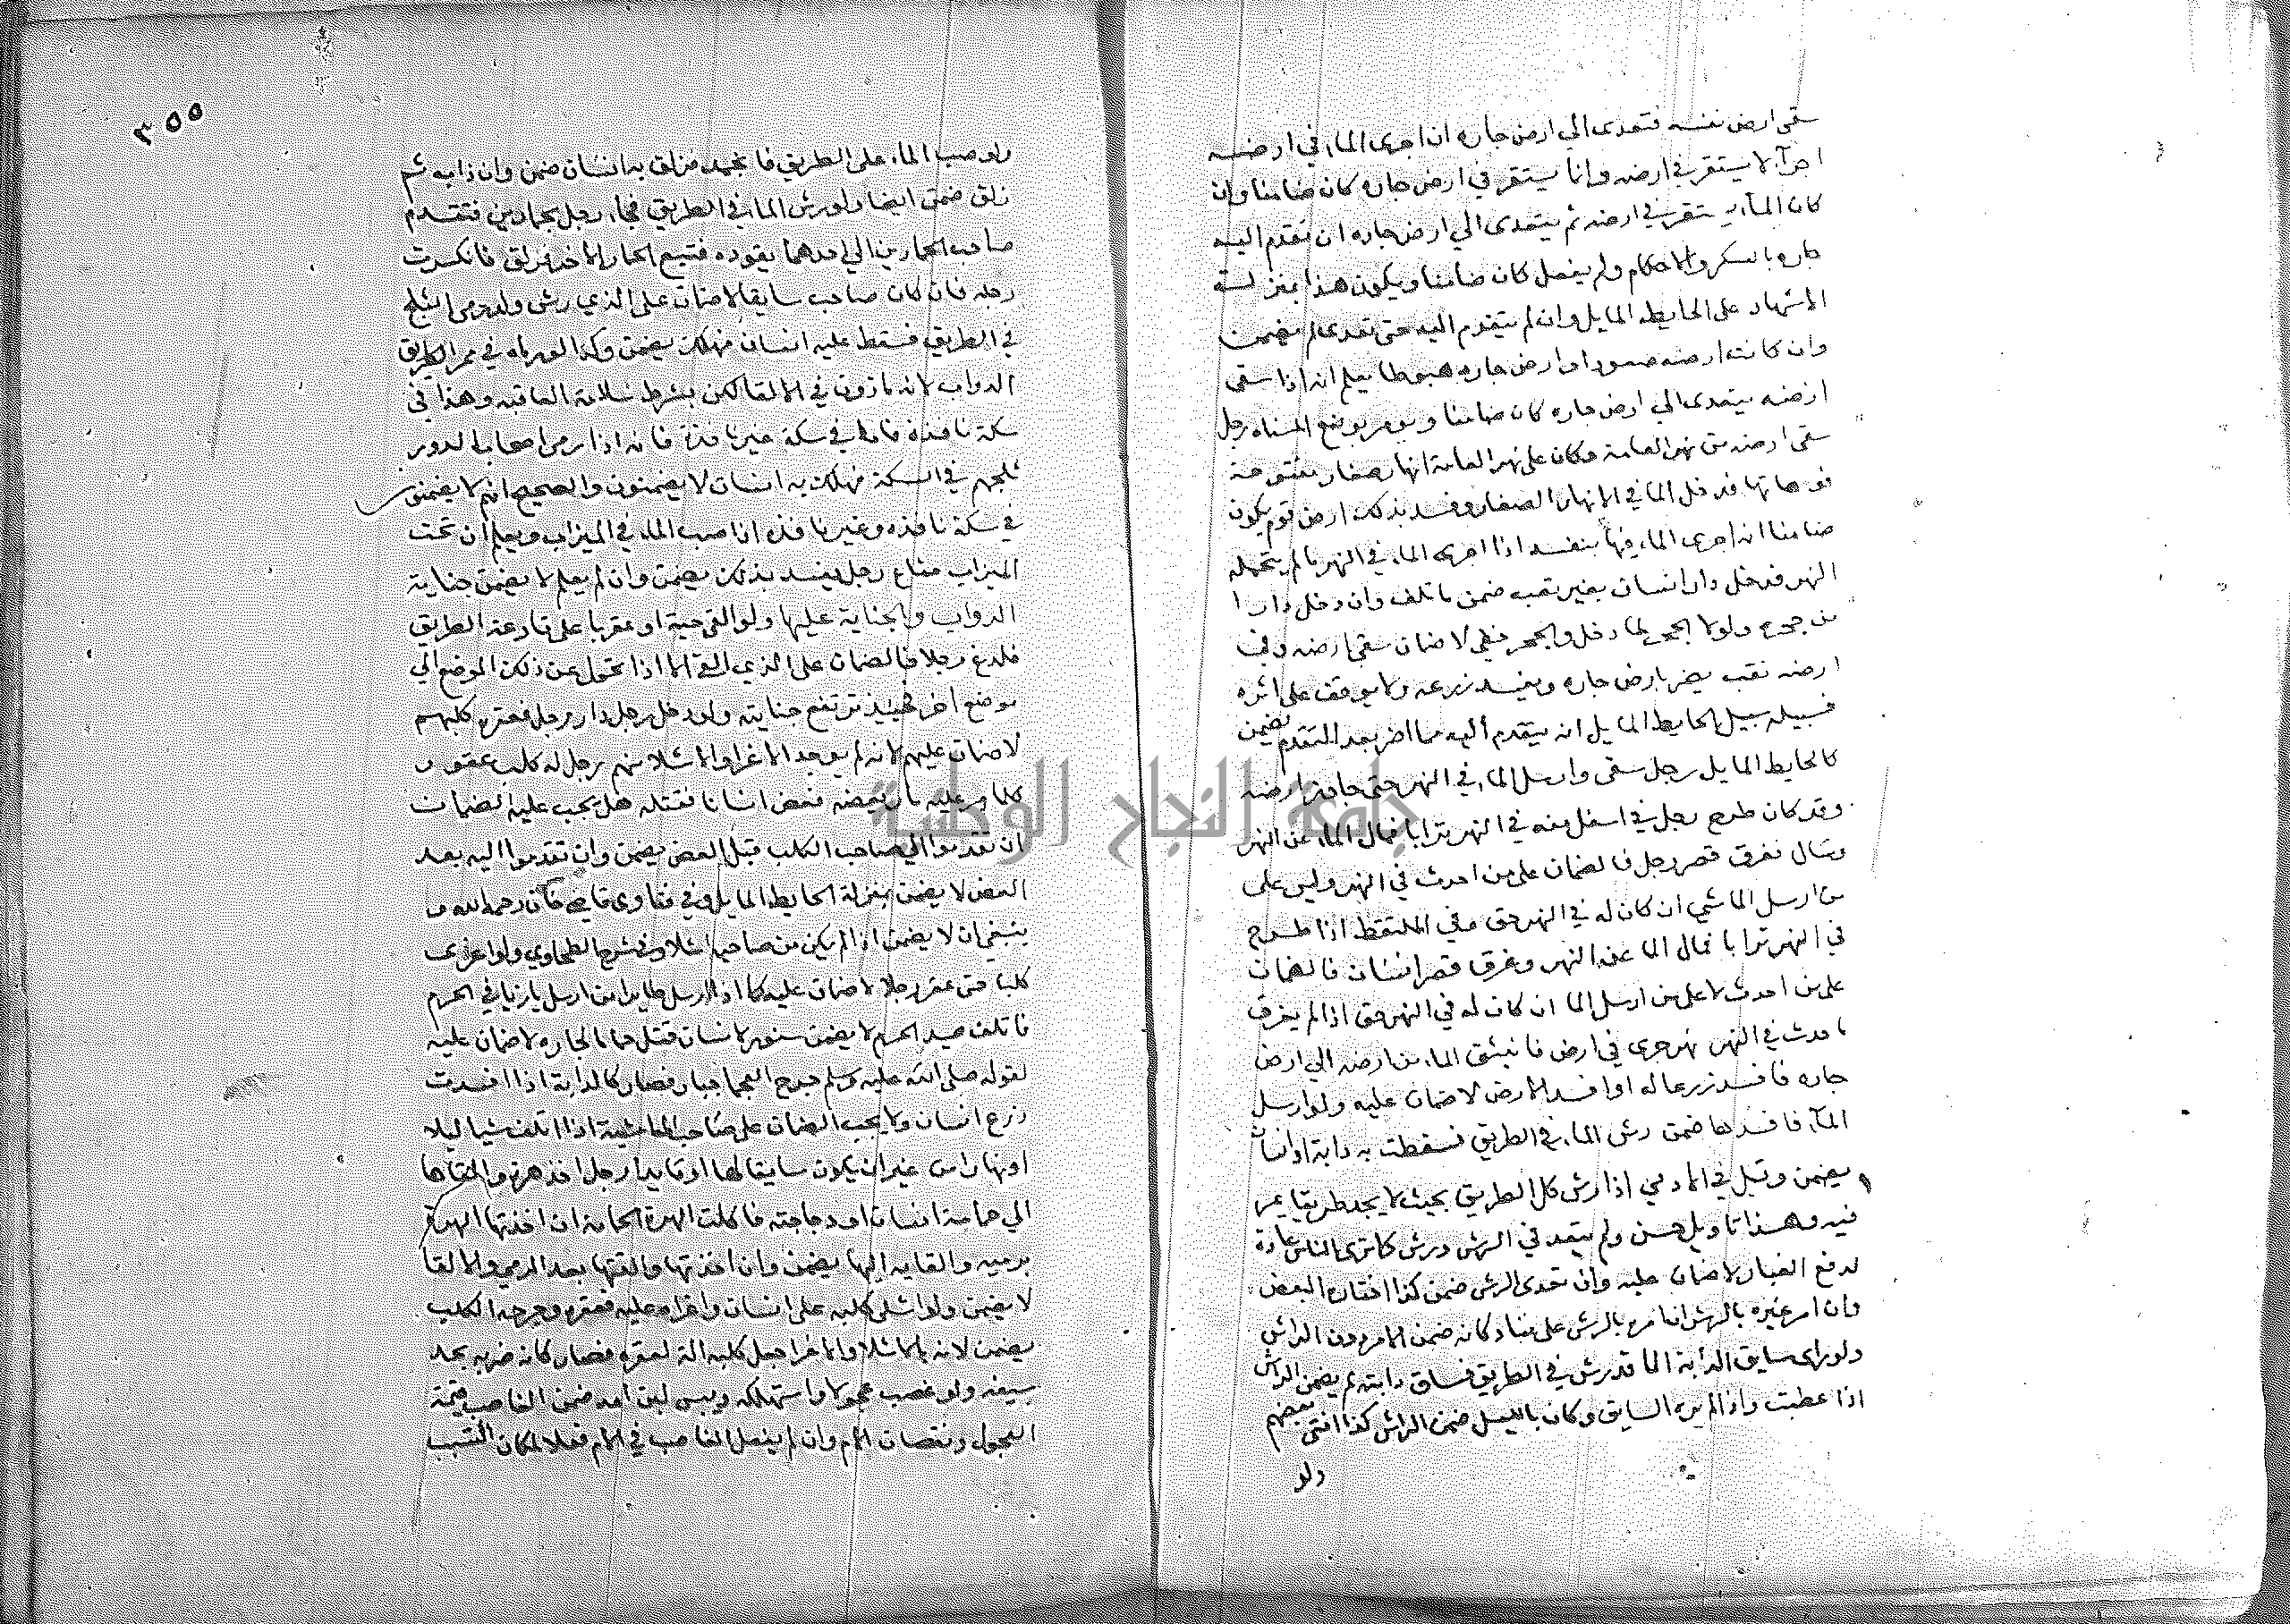 سقى ارض نفسه فتعدى الي ارض جاره ان اجرى الماء في ارضه
اجرآء لا يستقر في ارضه وانما يستقر في ارض جاره كان ضامنا وان
كان المآء يستقر في ارضه ثم يتعدى الي ارض جاره ان تقدم اليه
جاره بالسكر والاحكام ولم يفعل كان ضامنا ويكون هذا بمنزلة
الاشهاد على الحايط المايل وان لم يتقدم اليه حتى تعدى لم يضمن
وان كانت ارضه صعودا وارض جاره هبوطا يعلم انه اذا سقى
ارضه يتعدى الي ارض جاره كان ضامنا ويومر بوضع المسناه رجل
سقى ارضه من نهر العامة وكان على نهر العامة انهار صغار مفتوحة
فوهاتها فدخل الما في الانهار الصغار وفسد بذلك ارض قوم يكون
ضامنا لانه اجرى الماء فيها بنفسه اذا اجرى الماء في النهر ما لم يتحمله
النهر فدخل دار انسان بغير نقب ضمن ما تلف وان دخل دارا
من جحره ولولا الجحر لما دخل والجحر خفي لا ضمان سقى ارضه وفي
ارضه نقب يضر بارض جاره ويفسد زرعه ولا يوقف على اثره
فسبيله سبيل الحايط المايل ان يتقدم اليه مما اضر بعد التقدم يضمن
كالحايط المايل رجل سقى وارسل الماء في النهر حتى جاوز ارضه
وقد كان طرح رجل في اسفل منه في النهر ترابا فمال الماء عن النهر
وسال فغرق قصر رجل فالضمان على من احدث في النهر وليس على
من ارسل الما شي ان كان له في النهر حق وفي الملتقط اذا طرح
في النهر ترابا فمال الما عن النهر وغرق قصر انسان فالضمان
على من احدث لا على من ارسل الما ان كان له في النهر حق اذا لم يغرق
ما حدث في النهر نهر جرى في ارض فانبثق الماء من ارضه الي ارض
جاره فافسد زرعا له او افسد الارض لا ضمان عليه ولو ارسل
المآء فافسدها ضمن رش الماء في الطريق فسقطت به دابة او انسان
يضمن وقيل في الادمي اذا رش كل الطريق بحيث لا يجد طريقا يمر
فيه وهذا تاويل حسن ولم يتعد في الرش ورش كما ترى الناس عادة
لدفع الغبار لا ضمان عليه وان تعدى الرش ضمن كذا اختاره البعض
وان امر غيره بالرش انما مره بالرش على فناء دكانه ضمن الامر دون الراش
ولو راى سايق الدابة الما قد رش في الطريق فساق دابته لم يضمن الراش
اذا عطبت واذا لم يره السايق وكان بالليل ضمن الراش كذا افتى بعضهم
ولو
٣٥٥
ولو صب الماء على الطريق فانجمد فزلق به انسان ضمن وان ذاب ثم
زلق ضمن ايضا ولو رش الماء في الطريق فجاء رجل بحمارين فتقدم
صاحب الحمارين الي احدهما يقوده فتبع الحمار الاخر فزلق فانكسرت
رجله فان كان صاحبه سايقا لا ضمان على الذي رش ولو رمى الثلج
في الطريق فسقط عليه انسان فهلك يضمن وكذا لو رماه في ممر الطريق
الدواب لانه ماذون في الالقا لكن بشرط سلامة العاقبه وهذا في
سكة نافذة فاما في سكة غير نافذة فانه اذا رمى اصحاب الدور
ثلجهم في السكة فهلك به انسان لا يضمنون والصحيح انه لا يضمن
في سكة نافذه وغير نافذه اذا صب الماء في الميزاب ويعلم ان تحت
الميزاب متاع رجل يفسد بذلك يضمن وان لم يعلم لا يضمن جناية
الدواب والجناية عليها ولو القى حية او عقربا على قارعة الطريق
فلدغ رجلا فالضمان على الذي القى الا اذا تحول عن ذلك الموضع الي
موضع اخر فحينئذ ترتفع جنايته ولو دخل رجل دار رجل فعقره كلبهم
لا ضمان عليهم لانه لم يوجد الاغرا والاشلا منهم رجل له كلب عقور
كلما مر عليه مار يعضه فعض انسانا فقتله هل يجب عليه الضمان
ان تقدموا الي صاحب الكلب قبل العض يضمن وان تقدموا اليه بعد
العض لا يضمن بمنزلة الحايط المايل وفي فتاوى قاضي خان رحمه الله
ينبغي ان لا يضمن اذا لم يكن من صاحبه اشلا وفي شرح الطحاوي ولو اغرى
كلبا حتى عقر رجلا لا ضمان عليه كما اذا ارسل طايرا من ارسل بازيا في الحرم
فاتلف صيد الحرم لا يضمن سنور لانسان قتل حماما لجاره لا ضمان عليه
لقوله صلى الله عليه وسلم جرح العجما جبار فصار كالدابة اذا افسدت
زرع انسان ولا يجب الضمان على صاحب الماشية اذا اتلف شيا ليلا
او نهارا من غير ان يكون سايقا لها او قايدا رجل اخذ هرة والقاها
الي حمامة انسان او دجاجته فاكلت الهرة الحمامة ان اخذتها الهرة
برميه والقايه اليها يضمن وان اخذتها والقتها بعد الرمي والالقا
لا يضمن ولو اشلى كلبه على انسان واغراه عليه فعقره وجرحه الكلب
يضمن لانه بالاشلا والاغرا جعل كلبه الة لعقره فصار كانه ضربه بحد
سيفه ولو غصب عجولا واستهلكه ويبس لبن امه ضمن الغاصب قيمة
العجول ونقصان الام وان لم يفعل الغاصب في الام فعلا لمكان التسبب
جامعة النجاح الوطنية